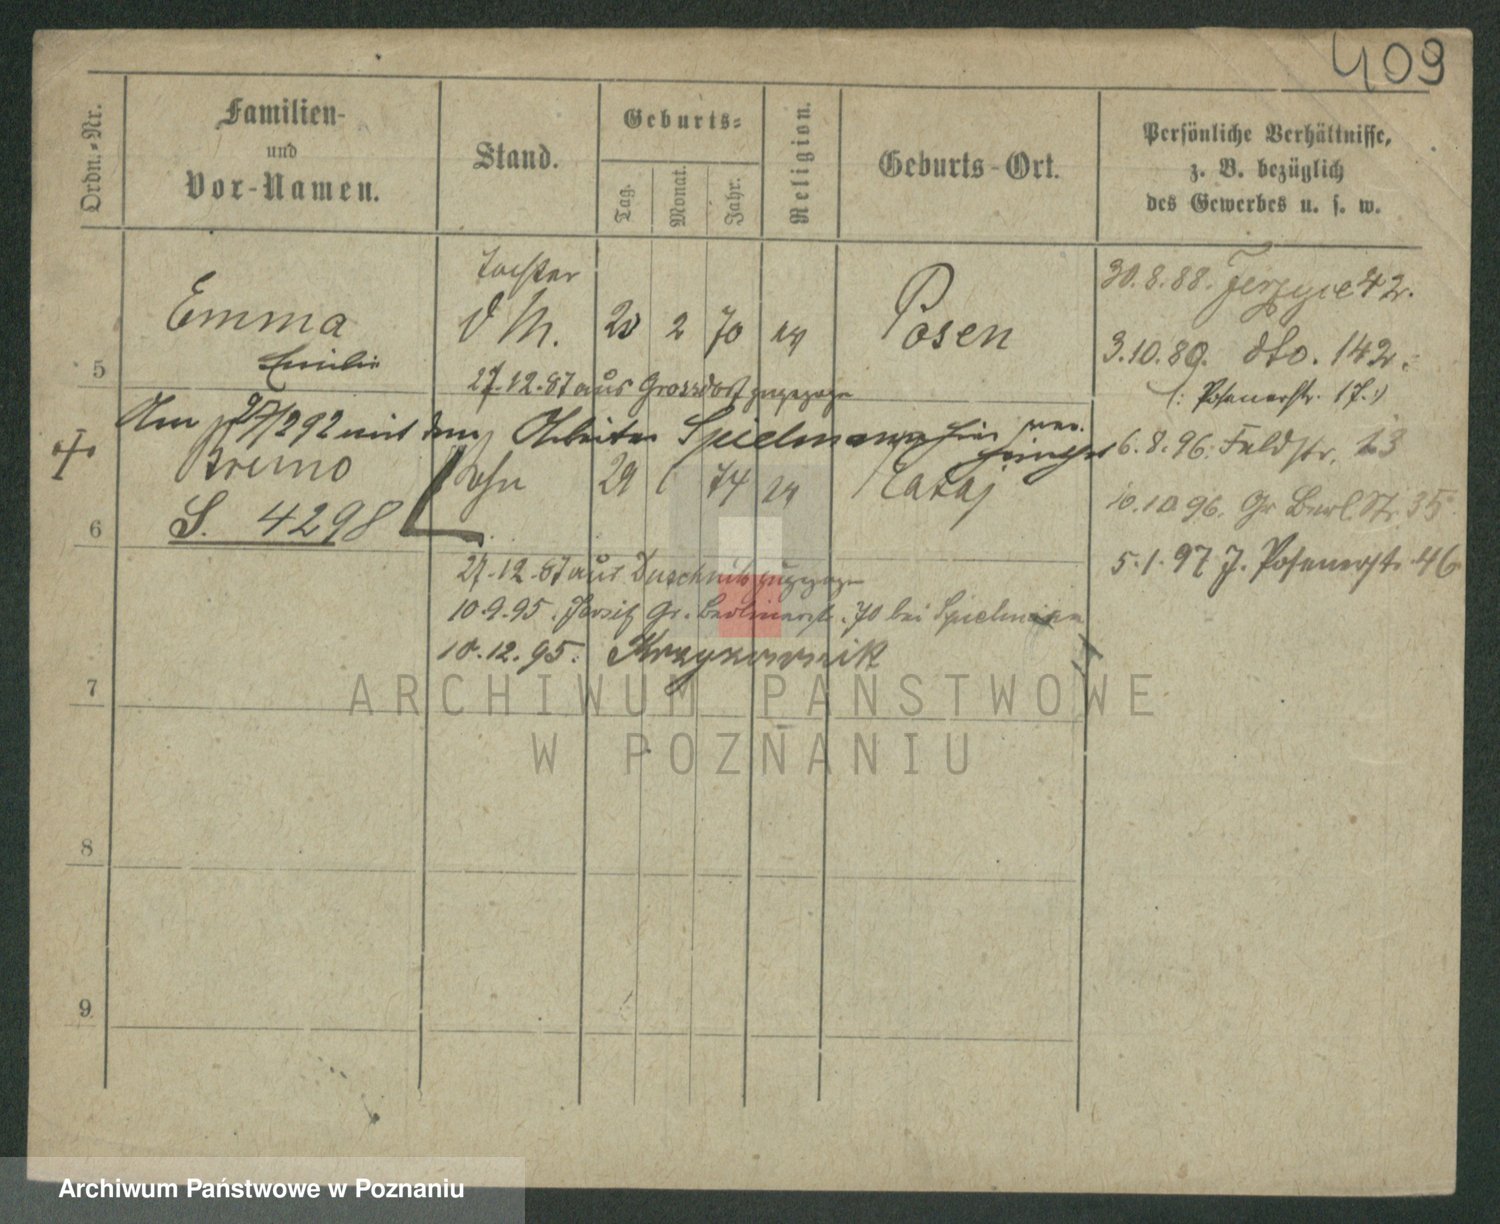 409
Ordn.-Nr.
Familien-
und
Vor-Namen.
Stand.
Geburts-
Tag.
Monat.
Jahr.
Religion.
Geburts-Ort.
Persönliche Verhältnisse,
z. B. bezüglich
des Gewerbes u. s. w.
5
Emma
Emilie
Tochter
d M.
20
2
70
ev
Posen
27.12.87 aus Grossdorf zugezogen
Am 27/2 92 mit dem Arbeiter Spielmann hier
6
Bruno
S. 4298
Sohn
29
74
ev
Lataj
27.12.87 aus Duschnik zugezogen
10.9.95. Jersitz Gr. Berlinerstr. 70 bei Spielmann
10.12.95.
30.8.88. Jerzyce 42.
3.10.89. dto. 142.
(: Posenerstr. 17.)
6.8.96. Feldstr. 13
10.10.96. Gr Berl. Str. 35
5.1.97 J. Posenerstr. 46
7
8
9
ARCHIWUM PAŃSTWOWE
W POZNANIU
Archiwum Państwowe w Poznaniu